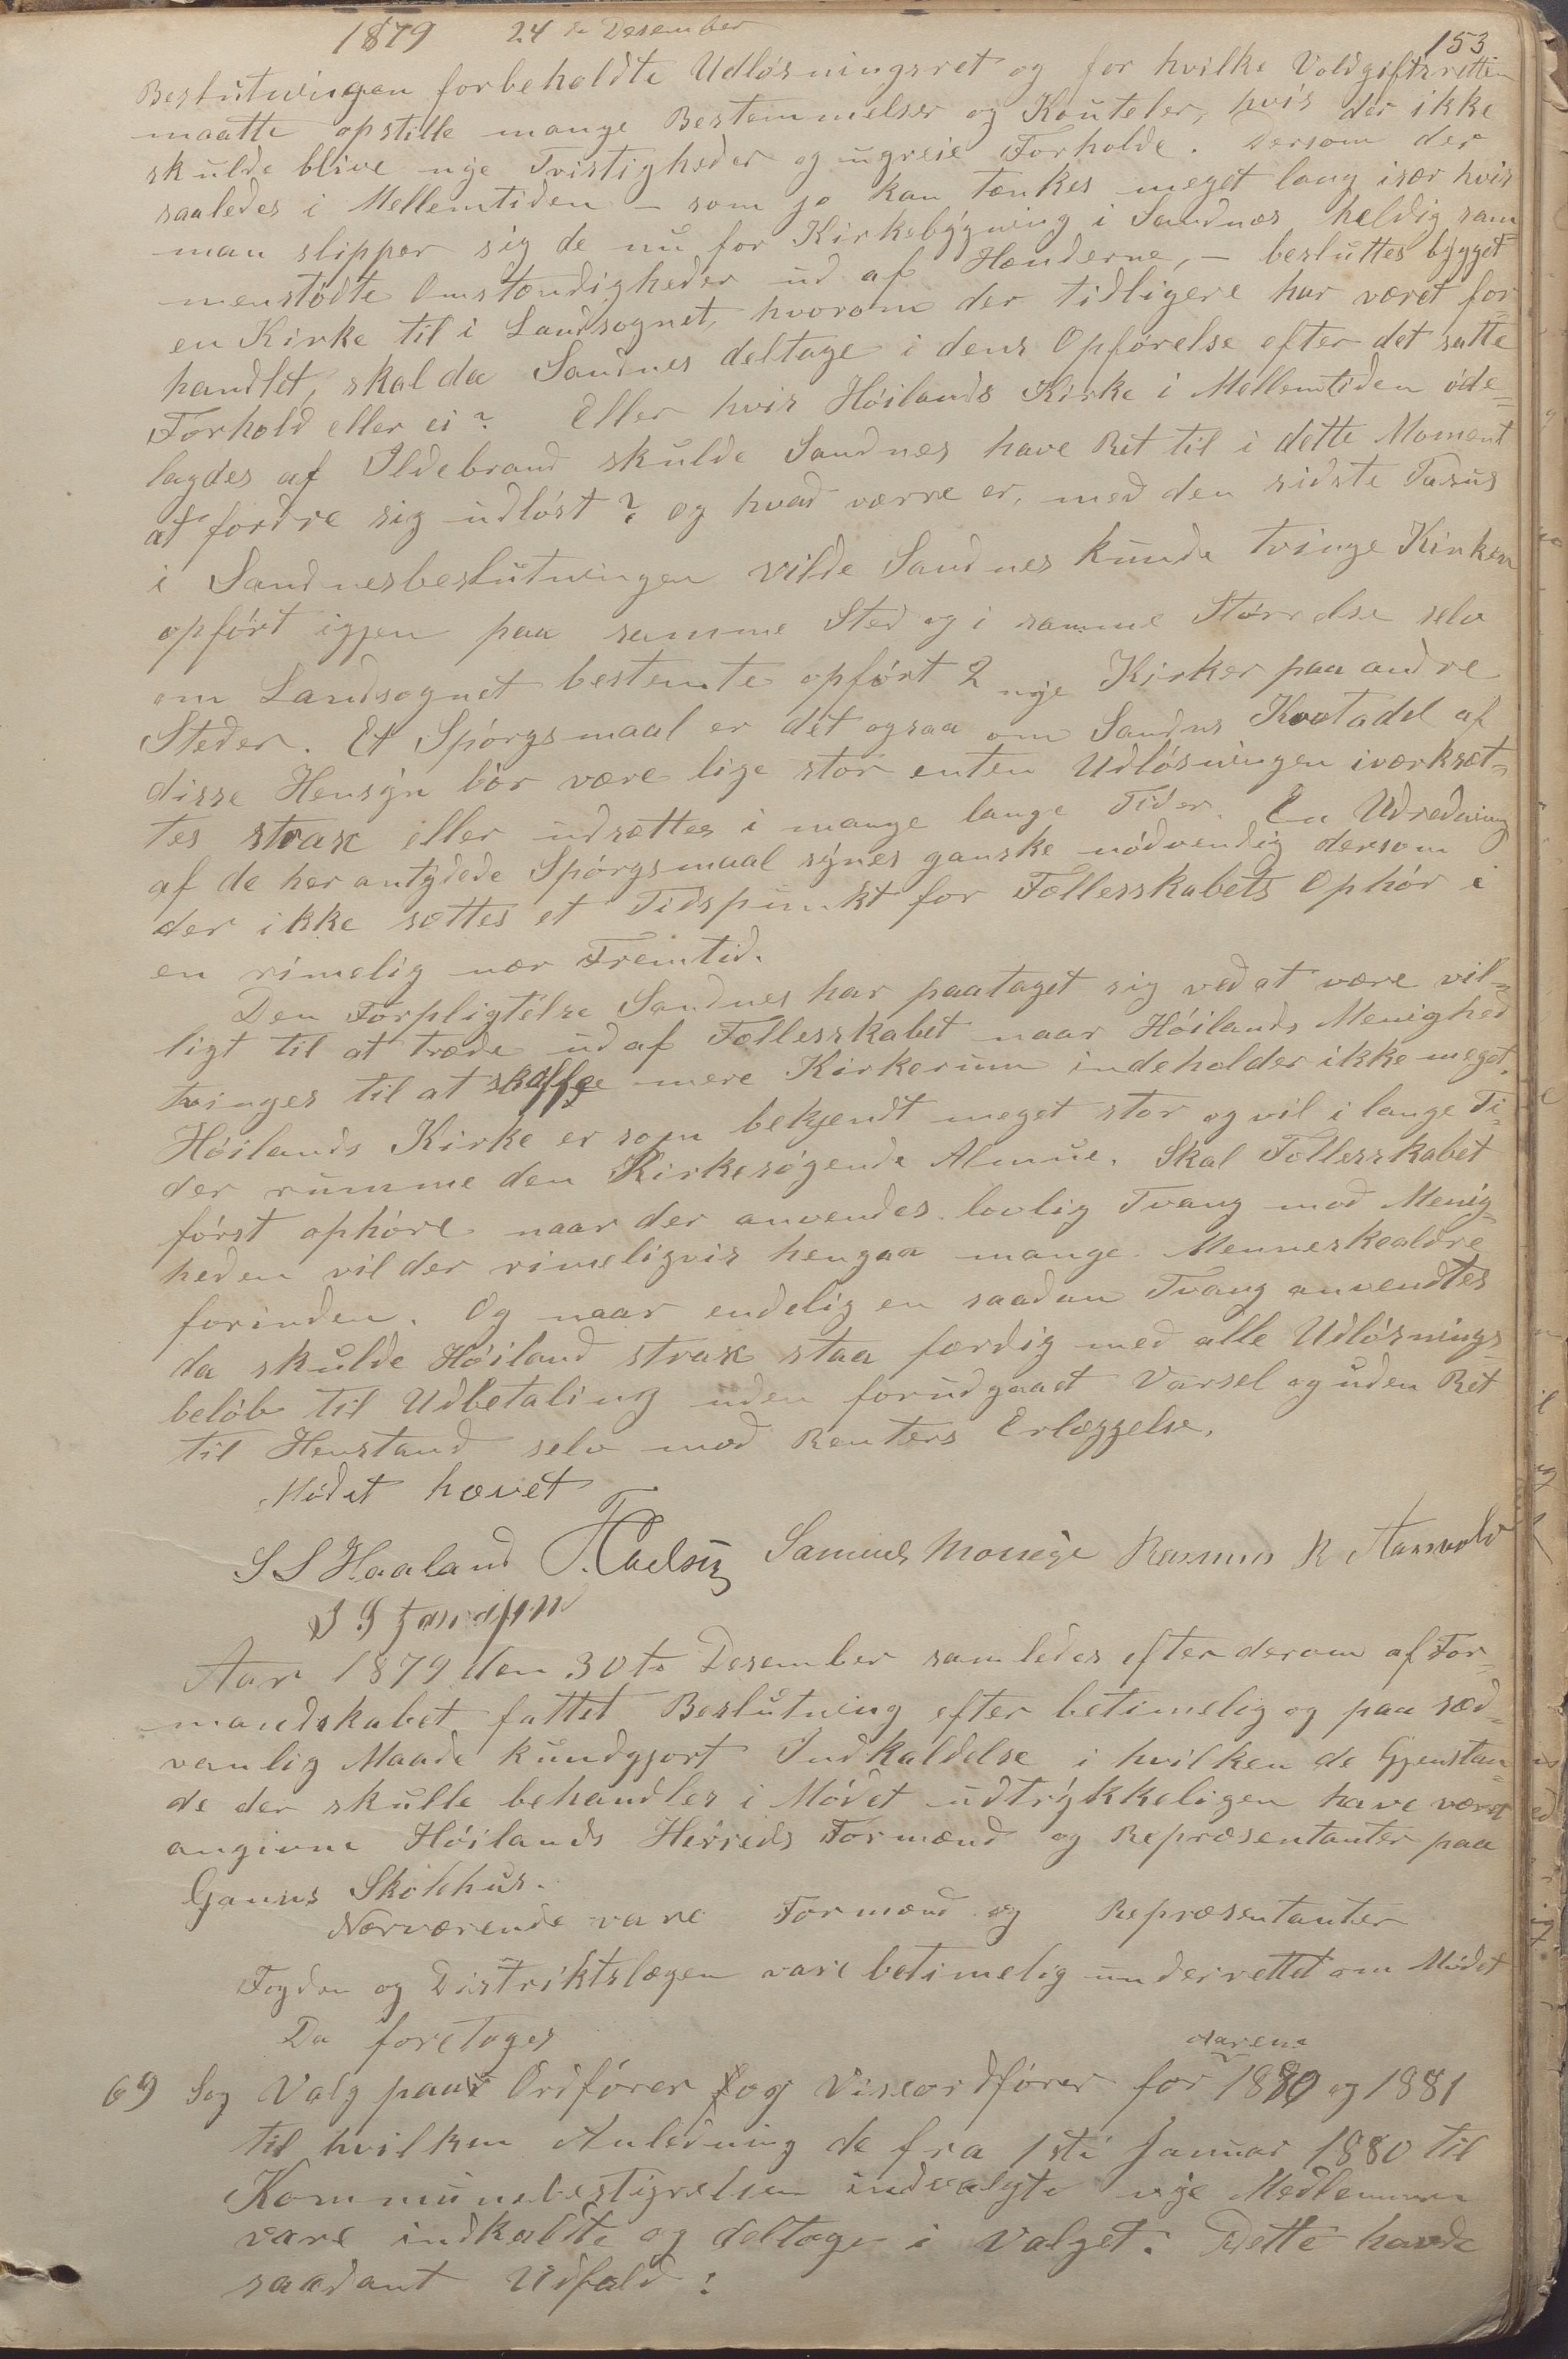 1879 24de Desember
153
Beslutningen forbeholdte Udløsningsret og for hvilke Voldgiftsretten
maatte opstille mange Bestemmelser og Kauteler, hvis der ikke
skulde blive nye Tvistigheder og ugreie Forholde. Dersom der
saaledes i Mellemtiden – som jo kan tænkes meget lang især hvis
man slipper sig de nu for Kirkebygning i Sandnæs heldig sam-
menstødte Omstændigheder ud af Hænderne, – besluttes bygget
en Kirke til i Landsognet, hvorom der tidligere har været for-
handlet, skal da Sandnes deltage i dens Opførelse efter det satte
Forhold eller ei? Eller hvis Høilands Kirke i Mellemtiden øde-
lagdes af Ildebrand skulde Sandnes have Ret til i dette Moment
at fordre sig udløst? og hvad værre er, med den sidste Passus
i Sandnesbeslutningen vilde Sandnes kunde tvinge Kirken
opført igjen paa samme Sted og i samme Størrelse selv
om Landsognet bestemte opført 2 nye Kirker paa andre
Steder. Et Spørgsmaal er det ogsaa om Sandns Kvotadel af
disse Hensyn bør være lige stor enten Udløsningen iværksæt-
tes strax eller udsættes i mange lange Tider. En Udredning
af de her antydede Spørgsmaal synes ganske nødvendig dersom
der ikke sættes et Tidspunkt for Fællesskabets Ophør i
en rimelig nær Fremtid.
Den Forpligtelse Sandnes har paataget sig ved at være vil-
ligt til at træde ud af Fællesskabet naar Høilands Menighed
tvinges til at skaffe mere Kirkerum indeholder ikke meget.
Høilands Kirke er som bekjendt meget stor og vil i lange Ti-
der rumme den Kirkesøgende Almue. Skal Fællesskabet
først ophøre naar der anvendes lovlig Tvang mod Menig-
heden vil der rimeligvis hengaa mange Menneskealdre
forinden. Og naar endelig en saadan Tvang anvendtes
da skulde Høiland strax staa færdig med alle Udløsnings-
beløb til Udbetaling uden forudgaaet Varsel og uden Ret
til Henstand selv mod Renters Erlæggelse.
Mødet hævet
S S Haaland Samuel Rasmus R
Aar 1879 den 30te Desember samledes efter derom af For-
mandskabet fattet Beslutning efter betimelig og paa sæd-
vanlig Maade kundgjort Indkaldelse i hvilken de Gjenstan-
de der skulle behandles i Mødet udtrykkeligen have været
angivne Høilands Herreds Formænd og Repræsentanter paa
Ganns Skolehus.
Nærværende vare Formænd og Repræsentanter
Fogden og Distriktslægen vare betimelig underrettet om Mødet
Da foretoges
Aarene
69 Sag Valg paa Ordfører og Viseordfører for 1880 og 1881
til hvilken Anledning de fra 1ste Januar 1880 til
Kommunebestyrelsen indvalgte nye Medlemmer
vare indkaldte og deltoge i Valget. Dette havde
saadant Udfald: